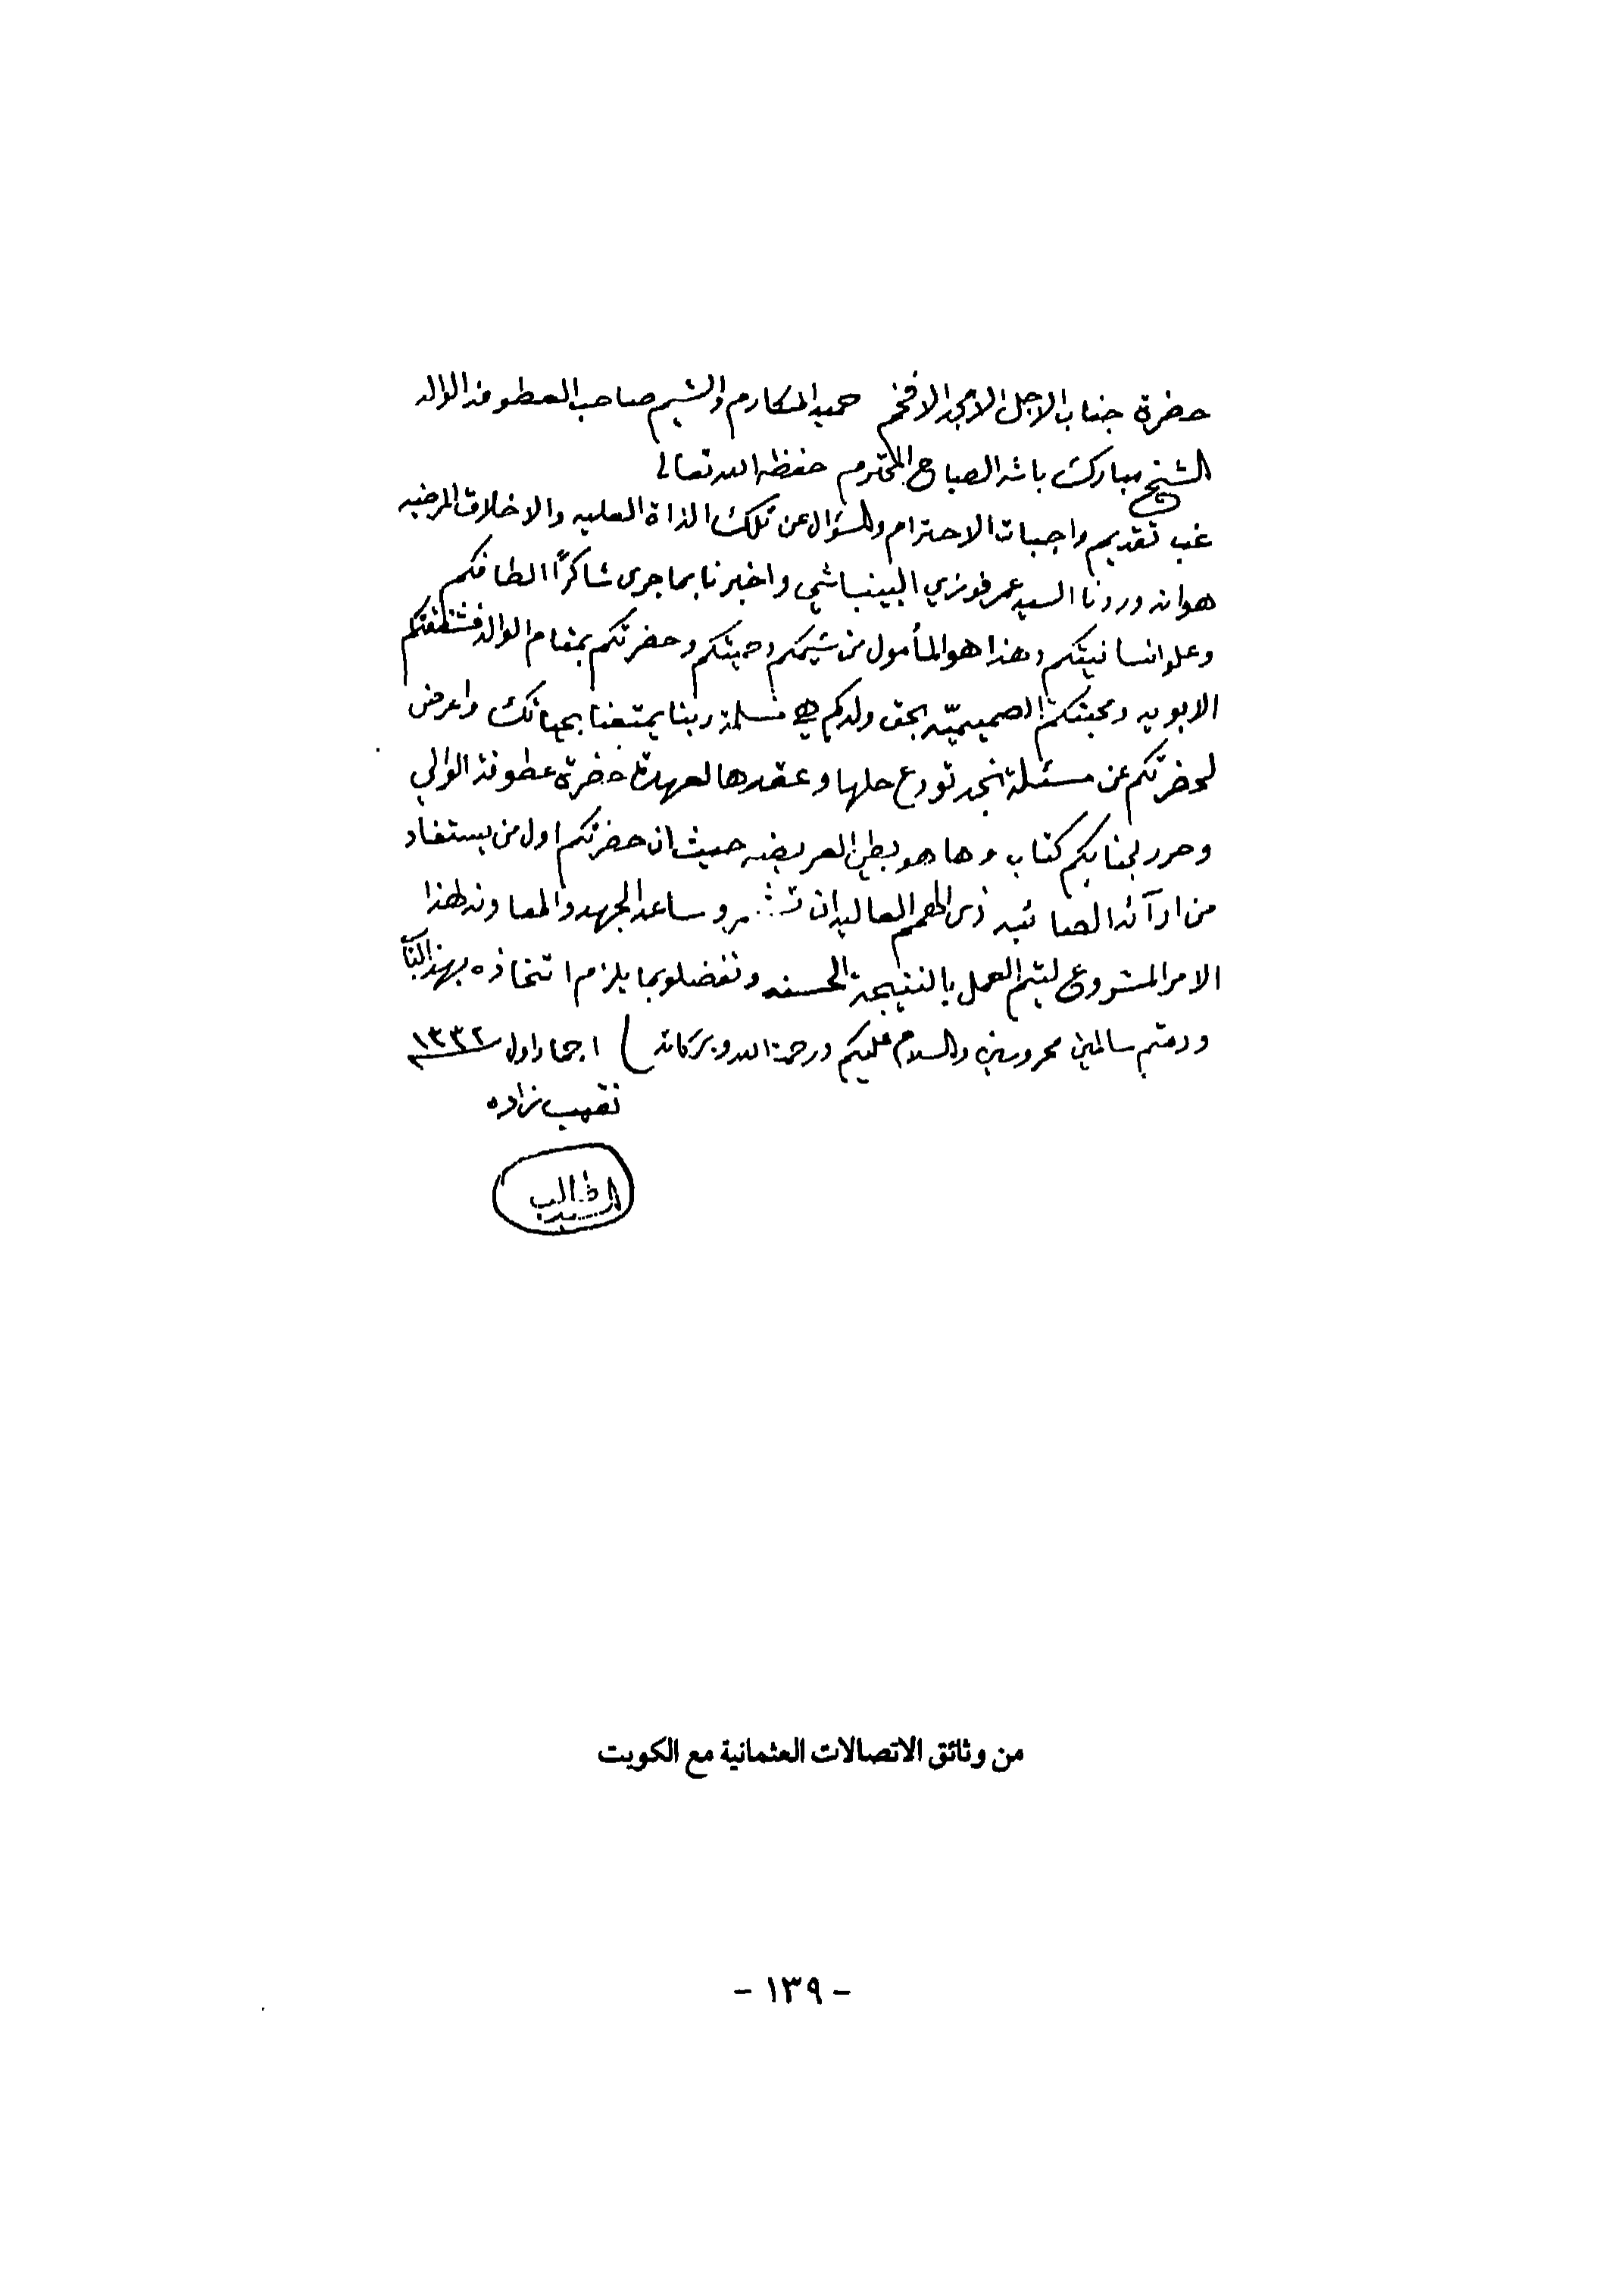 حضرة جناب الاجل الامجد الافخم حميد المكارم والشيم صاحب العطوفه الوالد
الشيخ مبارك باشه الصباح المحترم حفظه الله تعالى
غب تقديم واجبات الاحترام والسؤال عن تلك الذاة العليه والاخلاق المرضيه
هوانه وردنا السيد عمر فوزي البينباشي واخبرنا بما جرى شاكرًا الطافكم
وعلو انسانيتكم وهذا هو المأمول من شيمكم وحميتكم وحضرتكم بمقام الوالد فشفقتكم
الابويه ومحبتكم الصميميّه بحق ولدكم هي مسلمة ربنا يمتعنا بحياتك واعرض
لحضرتكم عن مسئلة نجد تودع حلها وعقدها لعهدة حضرة عطوفة الوالي
وحرر لجنابكم كتاب وها هو بطي العريضه حيث ان حضرتكم اول من يستفاد
من ارآئه الصائبه ذي الهمم العاليه ان وساعد الجهد والمعاونه لهذا
الامر المشروع ليتم العمل بالنتيجة الحسنه وتفضلو بما يلزم اتخاذه بهذا الباب
ودمتم سالمين محروسين والسلام عليكم ورحمة الله وبركاته ) ١ جماد اول ١٣٣٢
نقيب زاده
السيد طالب
من وثائق الاتصالات العثمانية مع الكويت
- ١٣٩ -